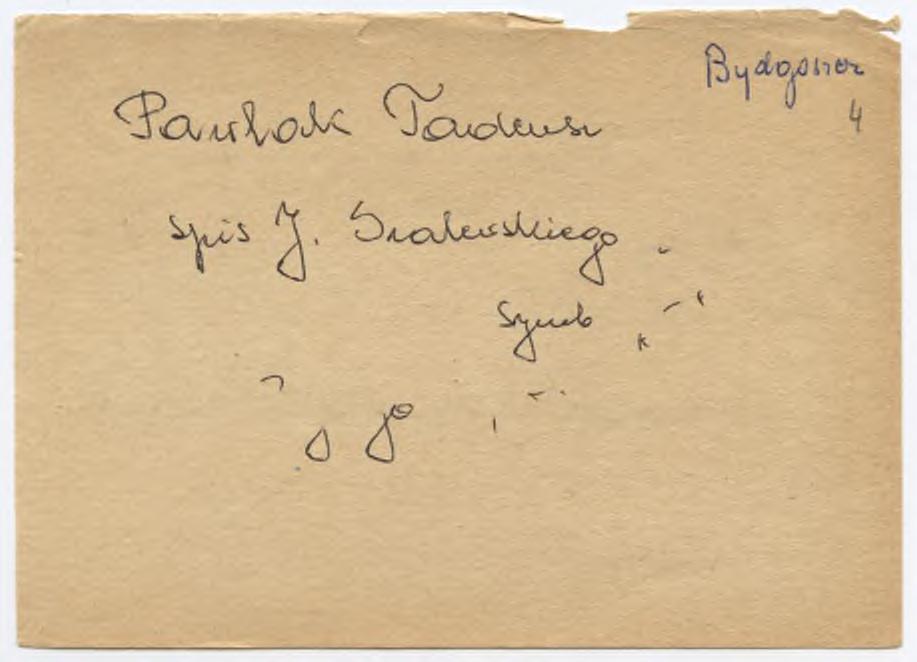 Bydgoszcz
4
Pawlak Tadeusz
spis J. Szalewskiego